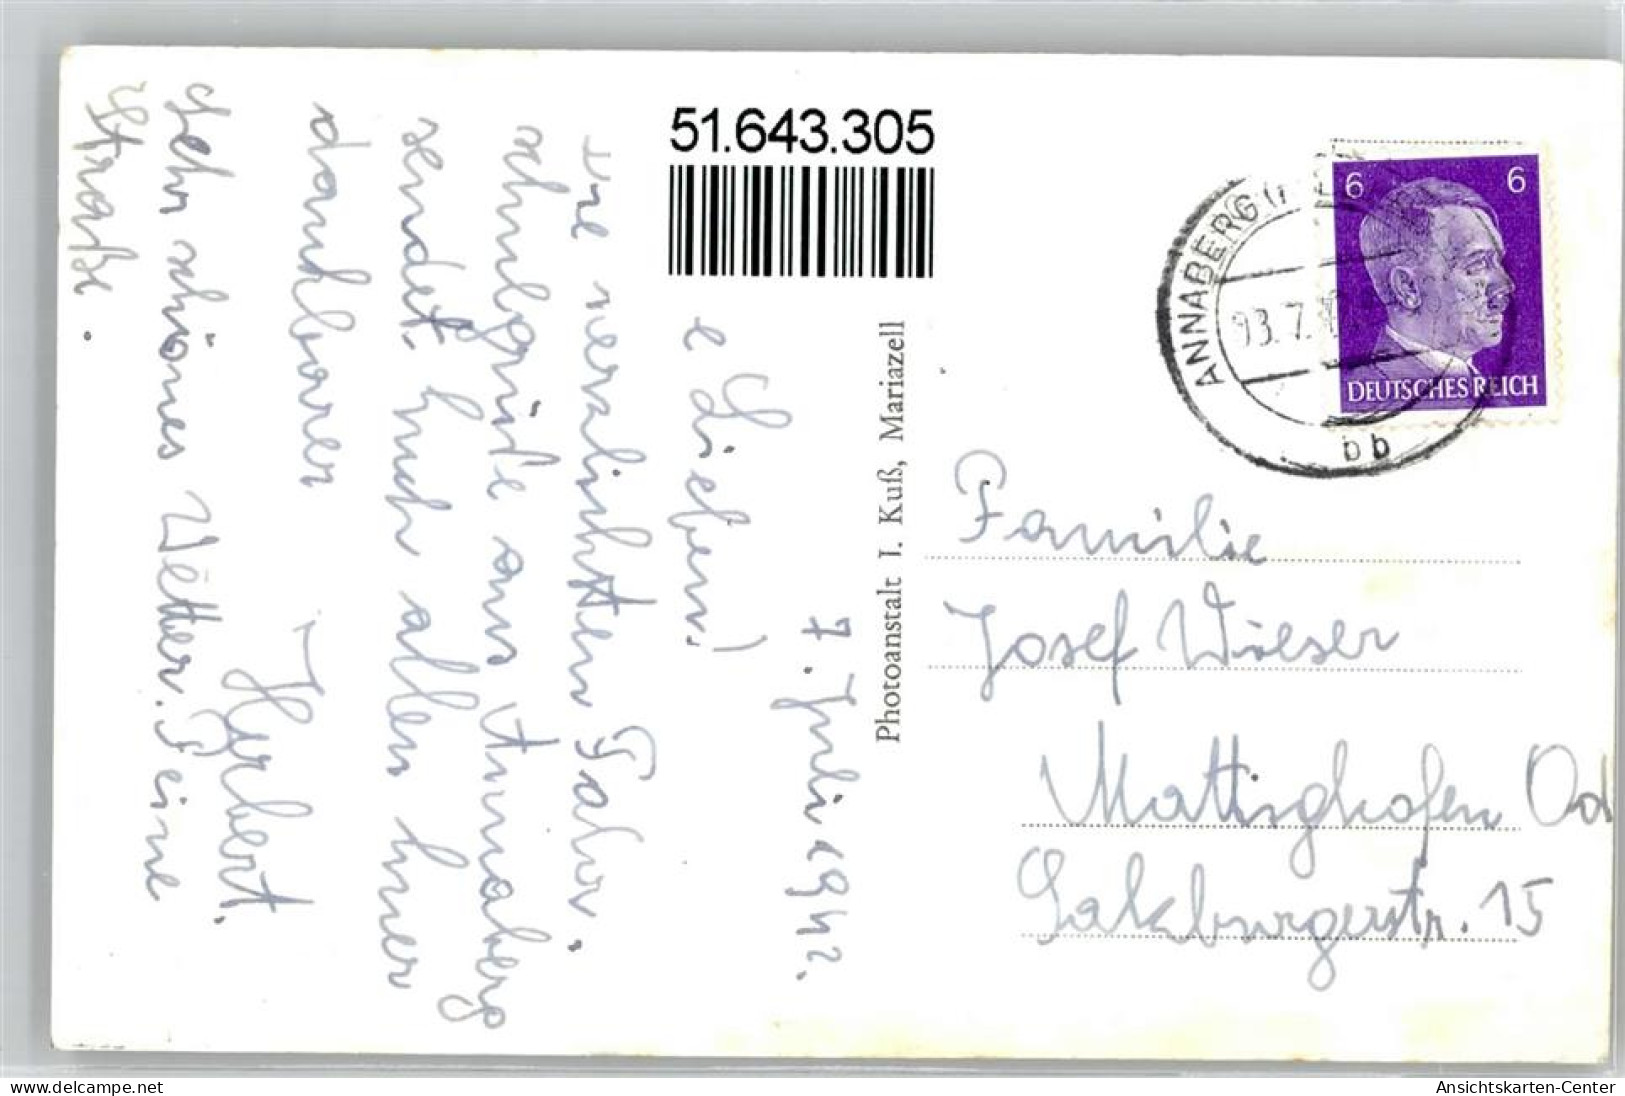 51.643.305
7. Juli 1942.
e Lieben!
Die herzlichsten
aus Annaberg
sendet Euch allen Euer
dankbarer
Herbert.
Sehr schönes Wetter. Feine
Straße.
Photoanstalt J. Kuß, Mariazell
ANNABERG
6 6
DEUTSCHES REICH
bb
Familie
Josef Wieser
Mattighofen Od
Salzburgerstr. 15
www.delcampe.net
Ansichtskarten-Center